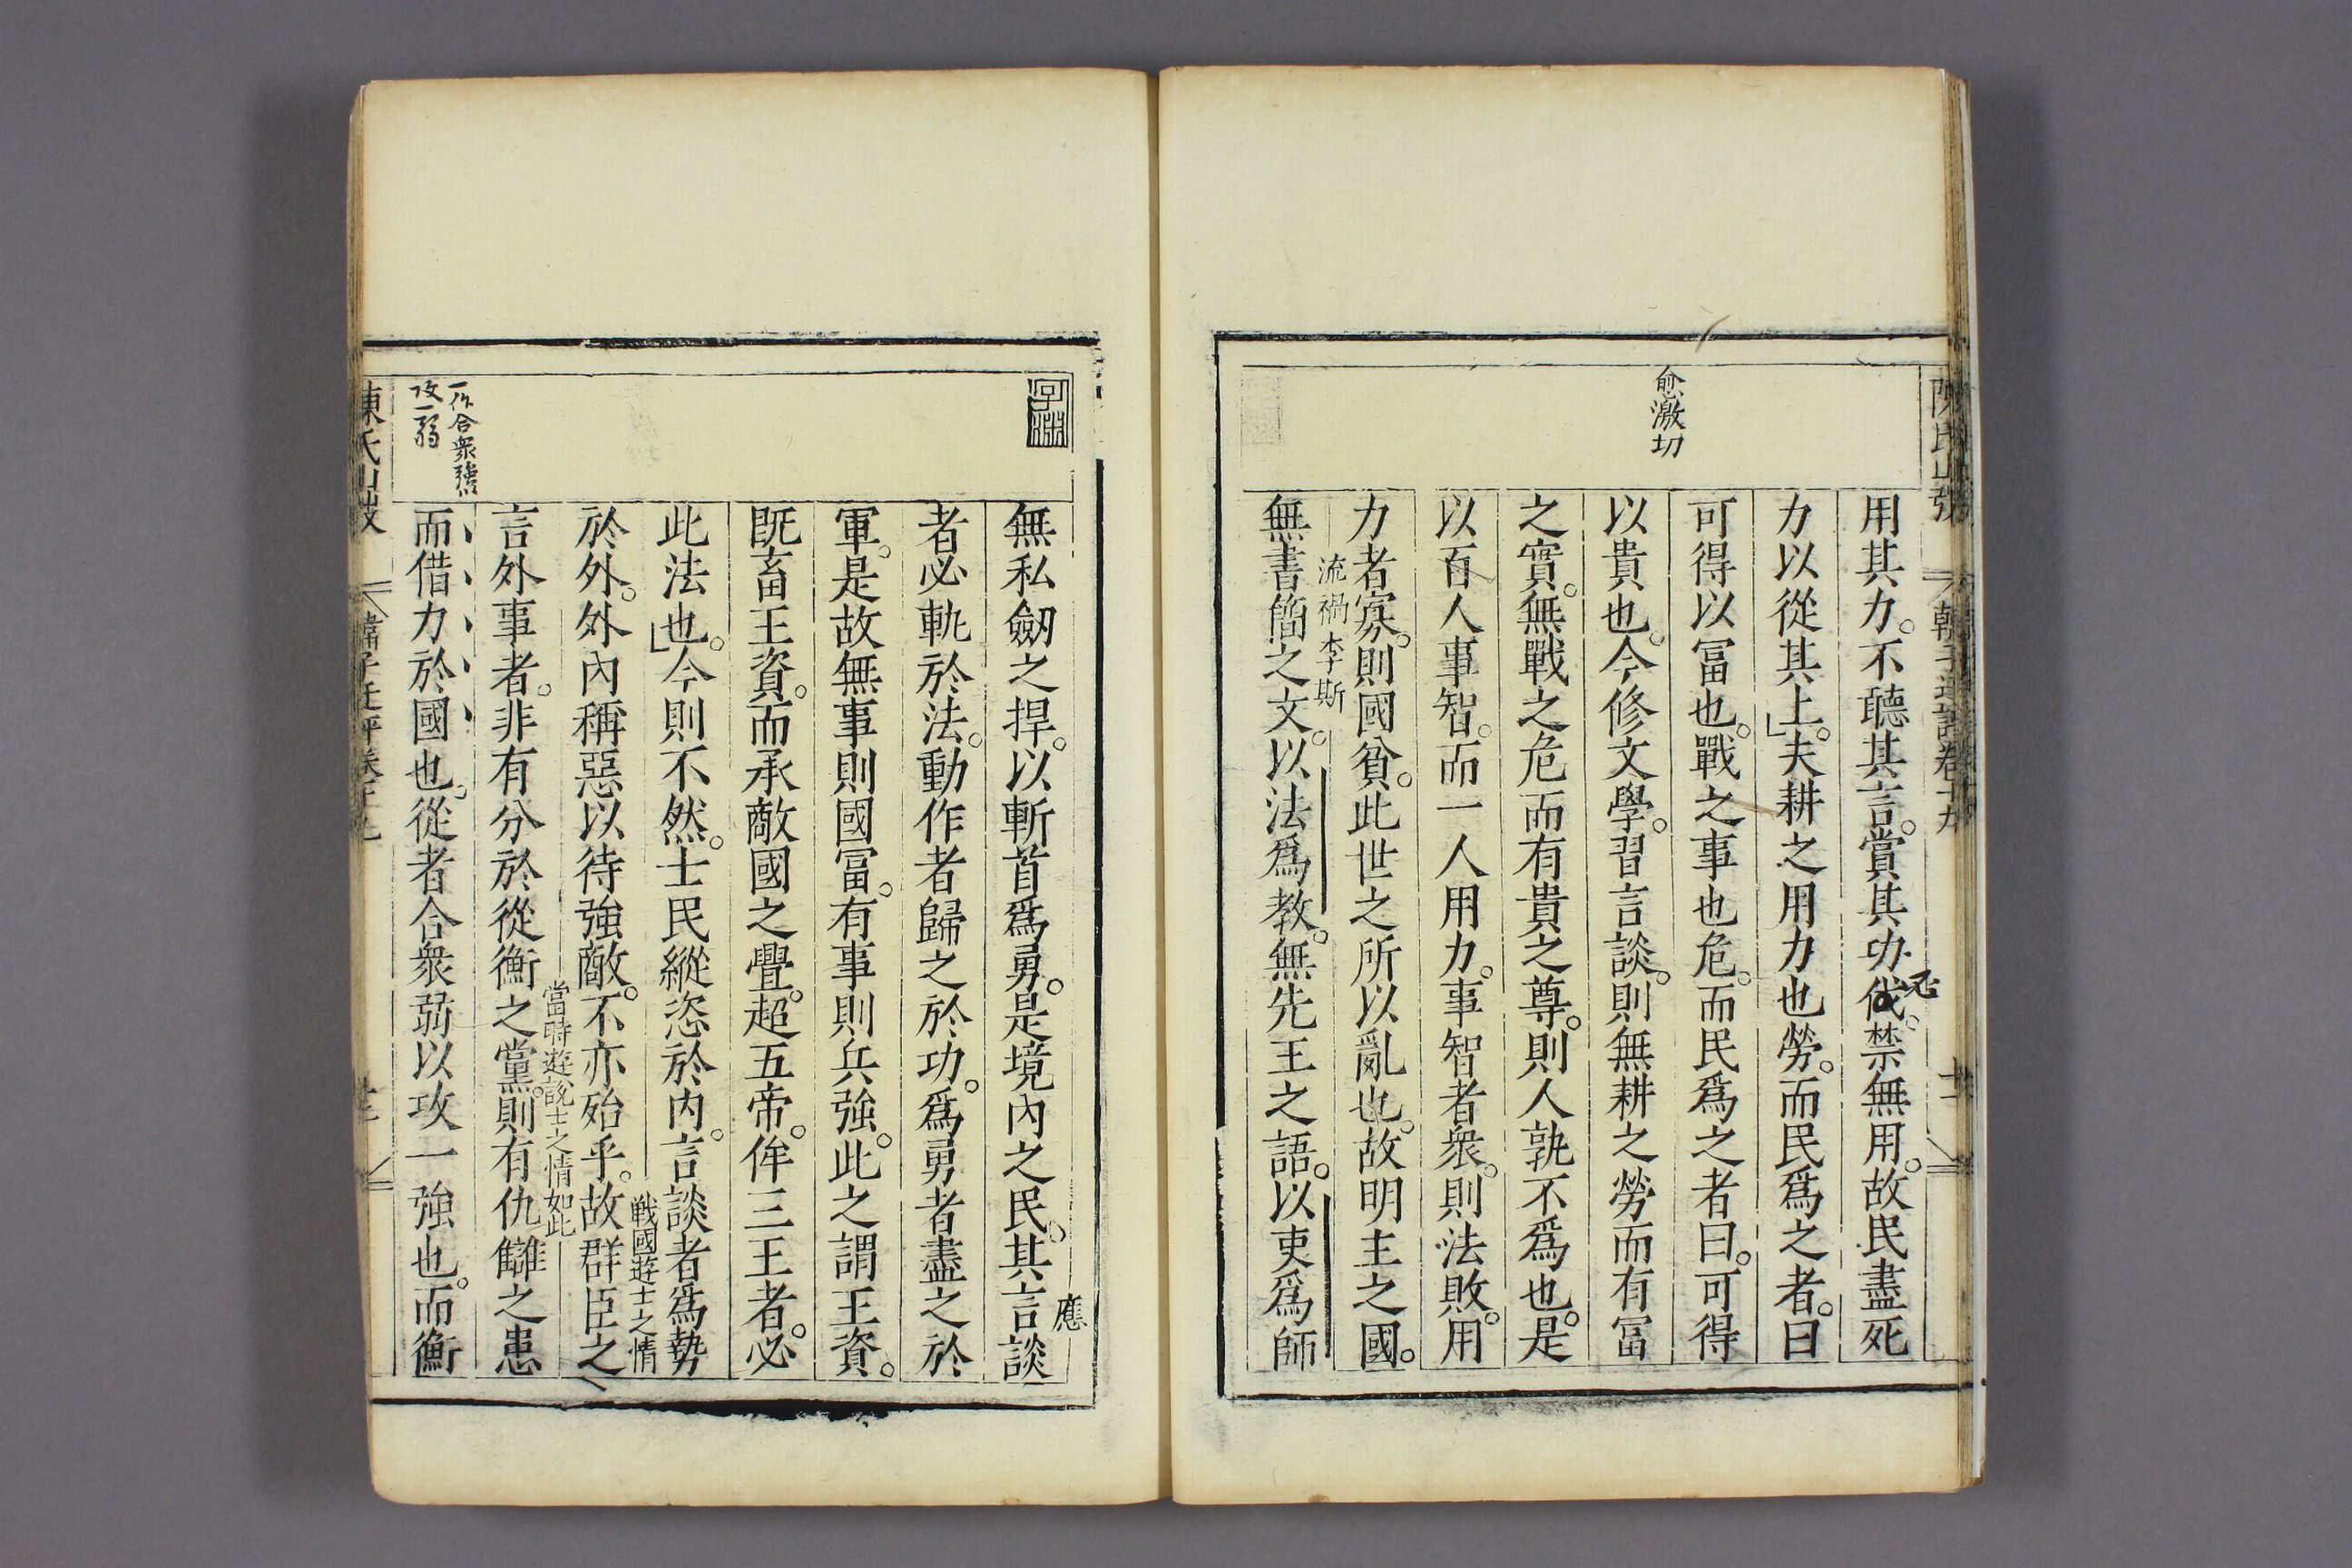 愈激切
用其力。不聽其言。賞其功。伐禁無用。故民盡死
力以從其上。夫耕之用力也勞。而民爲之者。曰
可得以冨也。戰之事也危。而民爲之者曰。可得
以貴也。今修文學。習言談。則無耕之勞而有冨
之實。無戰之危而有貴之尊。則人孰不爲也。是
以百人事智。而一人用力。事智者衆。則法敗。用
力者寡。則國貧。此世之所以亂也。故明主之國。
流禍李斯
無書簡之文。以法爲教。無先王之語。以吏爲師
應
無私劒之捍。以斬首爲勇。是境內之民。其言談
者必軌於法。動作者歸之於功。爲勇者盡之於
軍。是故無事則國冨。有事則兵強。此之謂王資。
旣畜王資。而承敵國之釁。超五帝。侔三王者。必
此法也。今則不然。士民縱恣於內。言談者爲勢
戰國遊士之情
於外。外內稱惡以待強敵。不亦殆乎。故群臣之
當時遊說士之情如此
言外事者。非有分於從衡之黨。則有仇讎之患
一作合衆強
攻一弱
而借力於國也。從者合衆弱以攻一強也。而衡